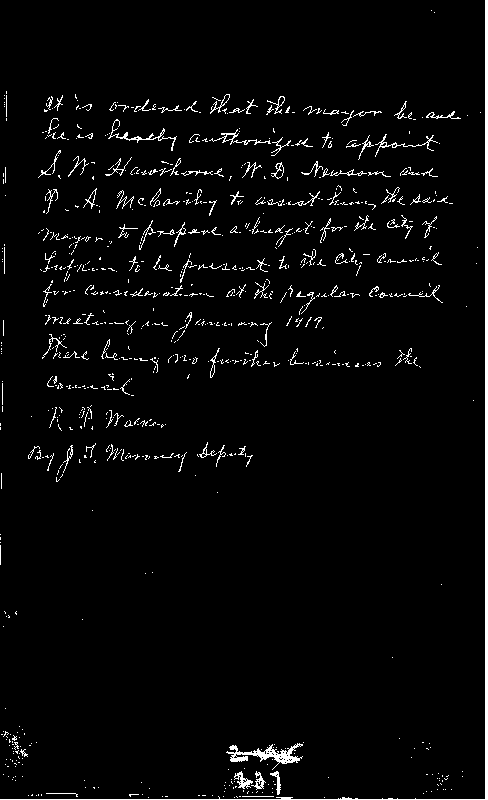 It is ordered that the mayor be and
he is hereby authorized to appoint
S. W. Hawthorne, W. D. Newsom and
P. A. McCarthy to assist him, the said
mayor, to prepare a budget for the City of
Lufkin to be present to the City Council
for consideration at the regular Council
meeting in January 1919.
There being no further business the
Council
R. P. Walker
By J. T. Maroney Deputy
227